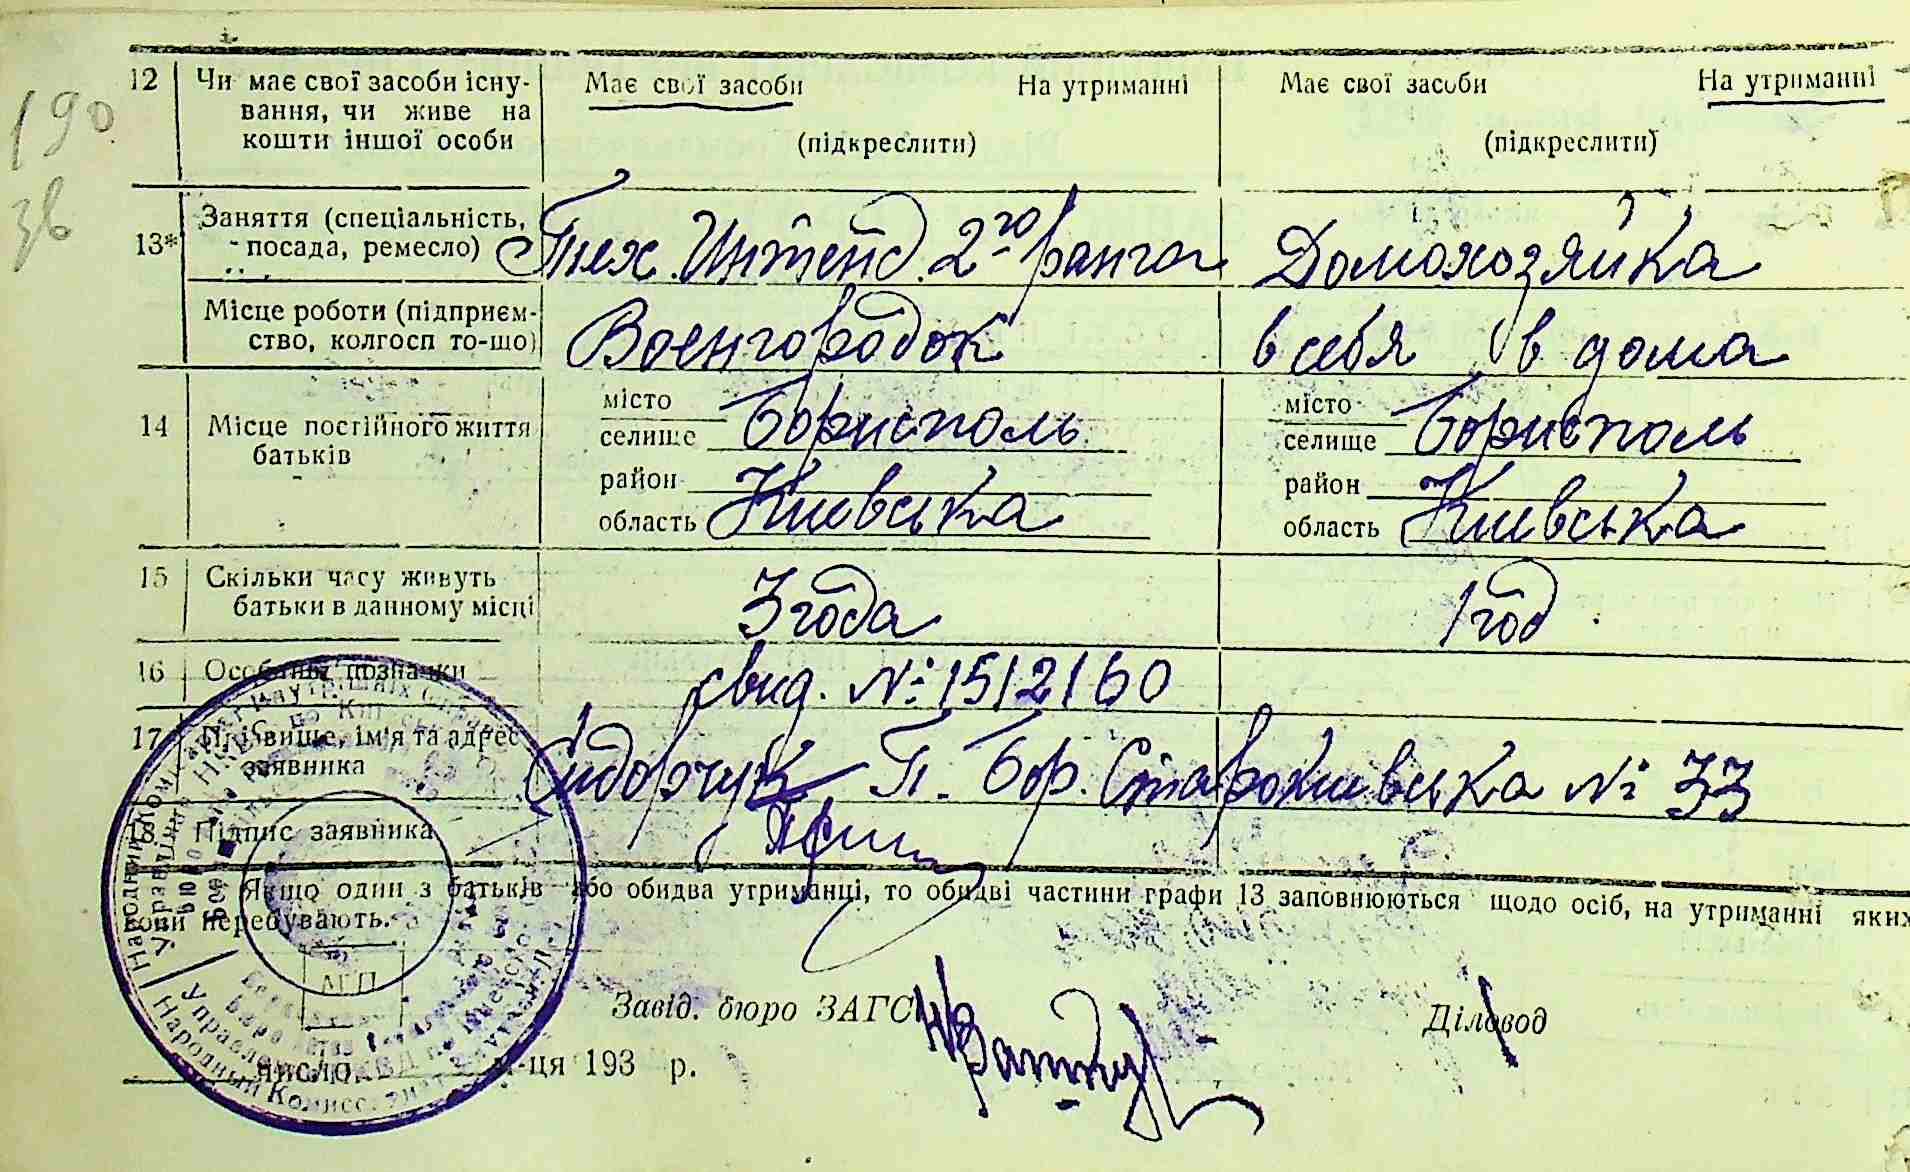 190
зв
12 Чи має свої засоби існу- Має свої засоби На утриманні Має свої засоби На утриманні
вання, чи живе на
кошти іншої особи (підкреслити) (підкреслити)
13* Заняття (спеціальність,
посада, ремесло) Тех. Интенд. 2го ранга Домохозяйка
Місце роботи (підприєм-
ство, колгосп то-що) Военгородок в себя в дома
14 Місце постійного життя
батьків
місто
селище Борисполь
район
область Киевська
місто
селище Борисполь
район
область Киевська
15 Скільки часу живуть
батьки в данному місці 3 года 1 год
16 Особливі позначки свид. № 1512160
17 Прізвище, ім'я та адрес
заявника Сидорчук П. Бор. Старокиевська № 33
18 Підпис заявника
Якщо один з батьків або обидва утриманці, то обидві частини графи 13 заповнюються щодо осіб, на утриманні яких
вони перебувають.
Завід. бюро ЗАГС Діловод
число ця 193 р.